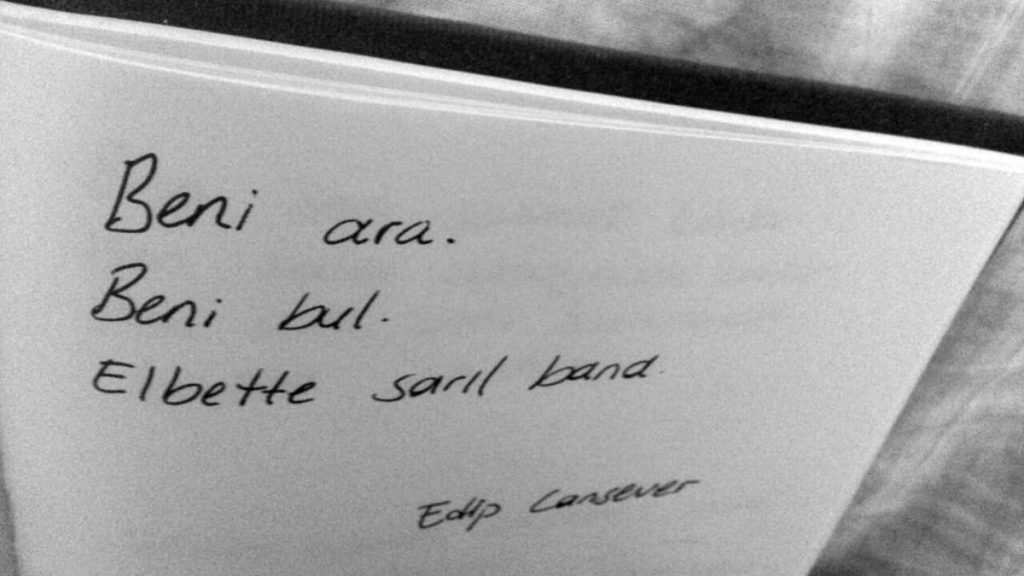 Beni ara.
Beni bul.
Elbette sarıl band.
Edip Cansever